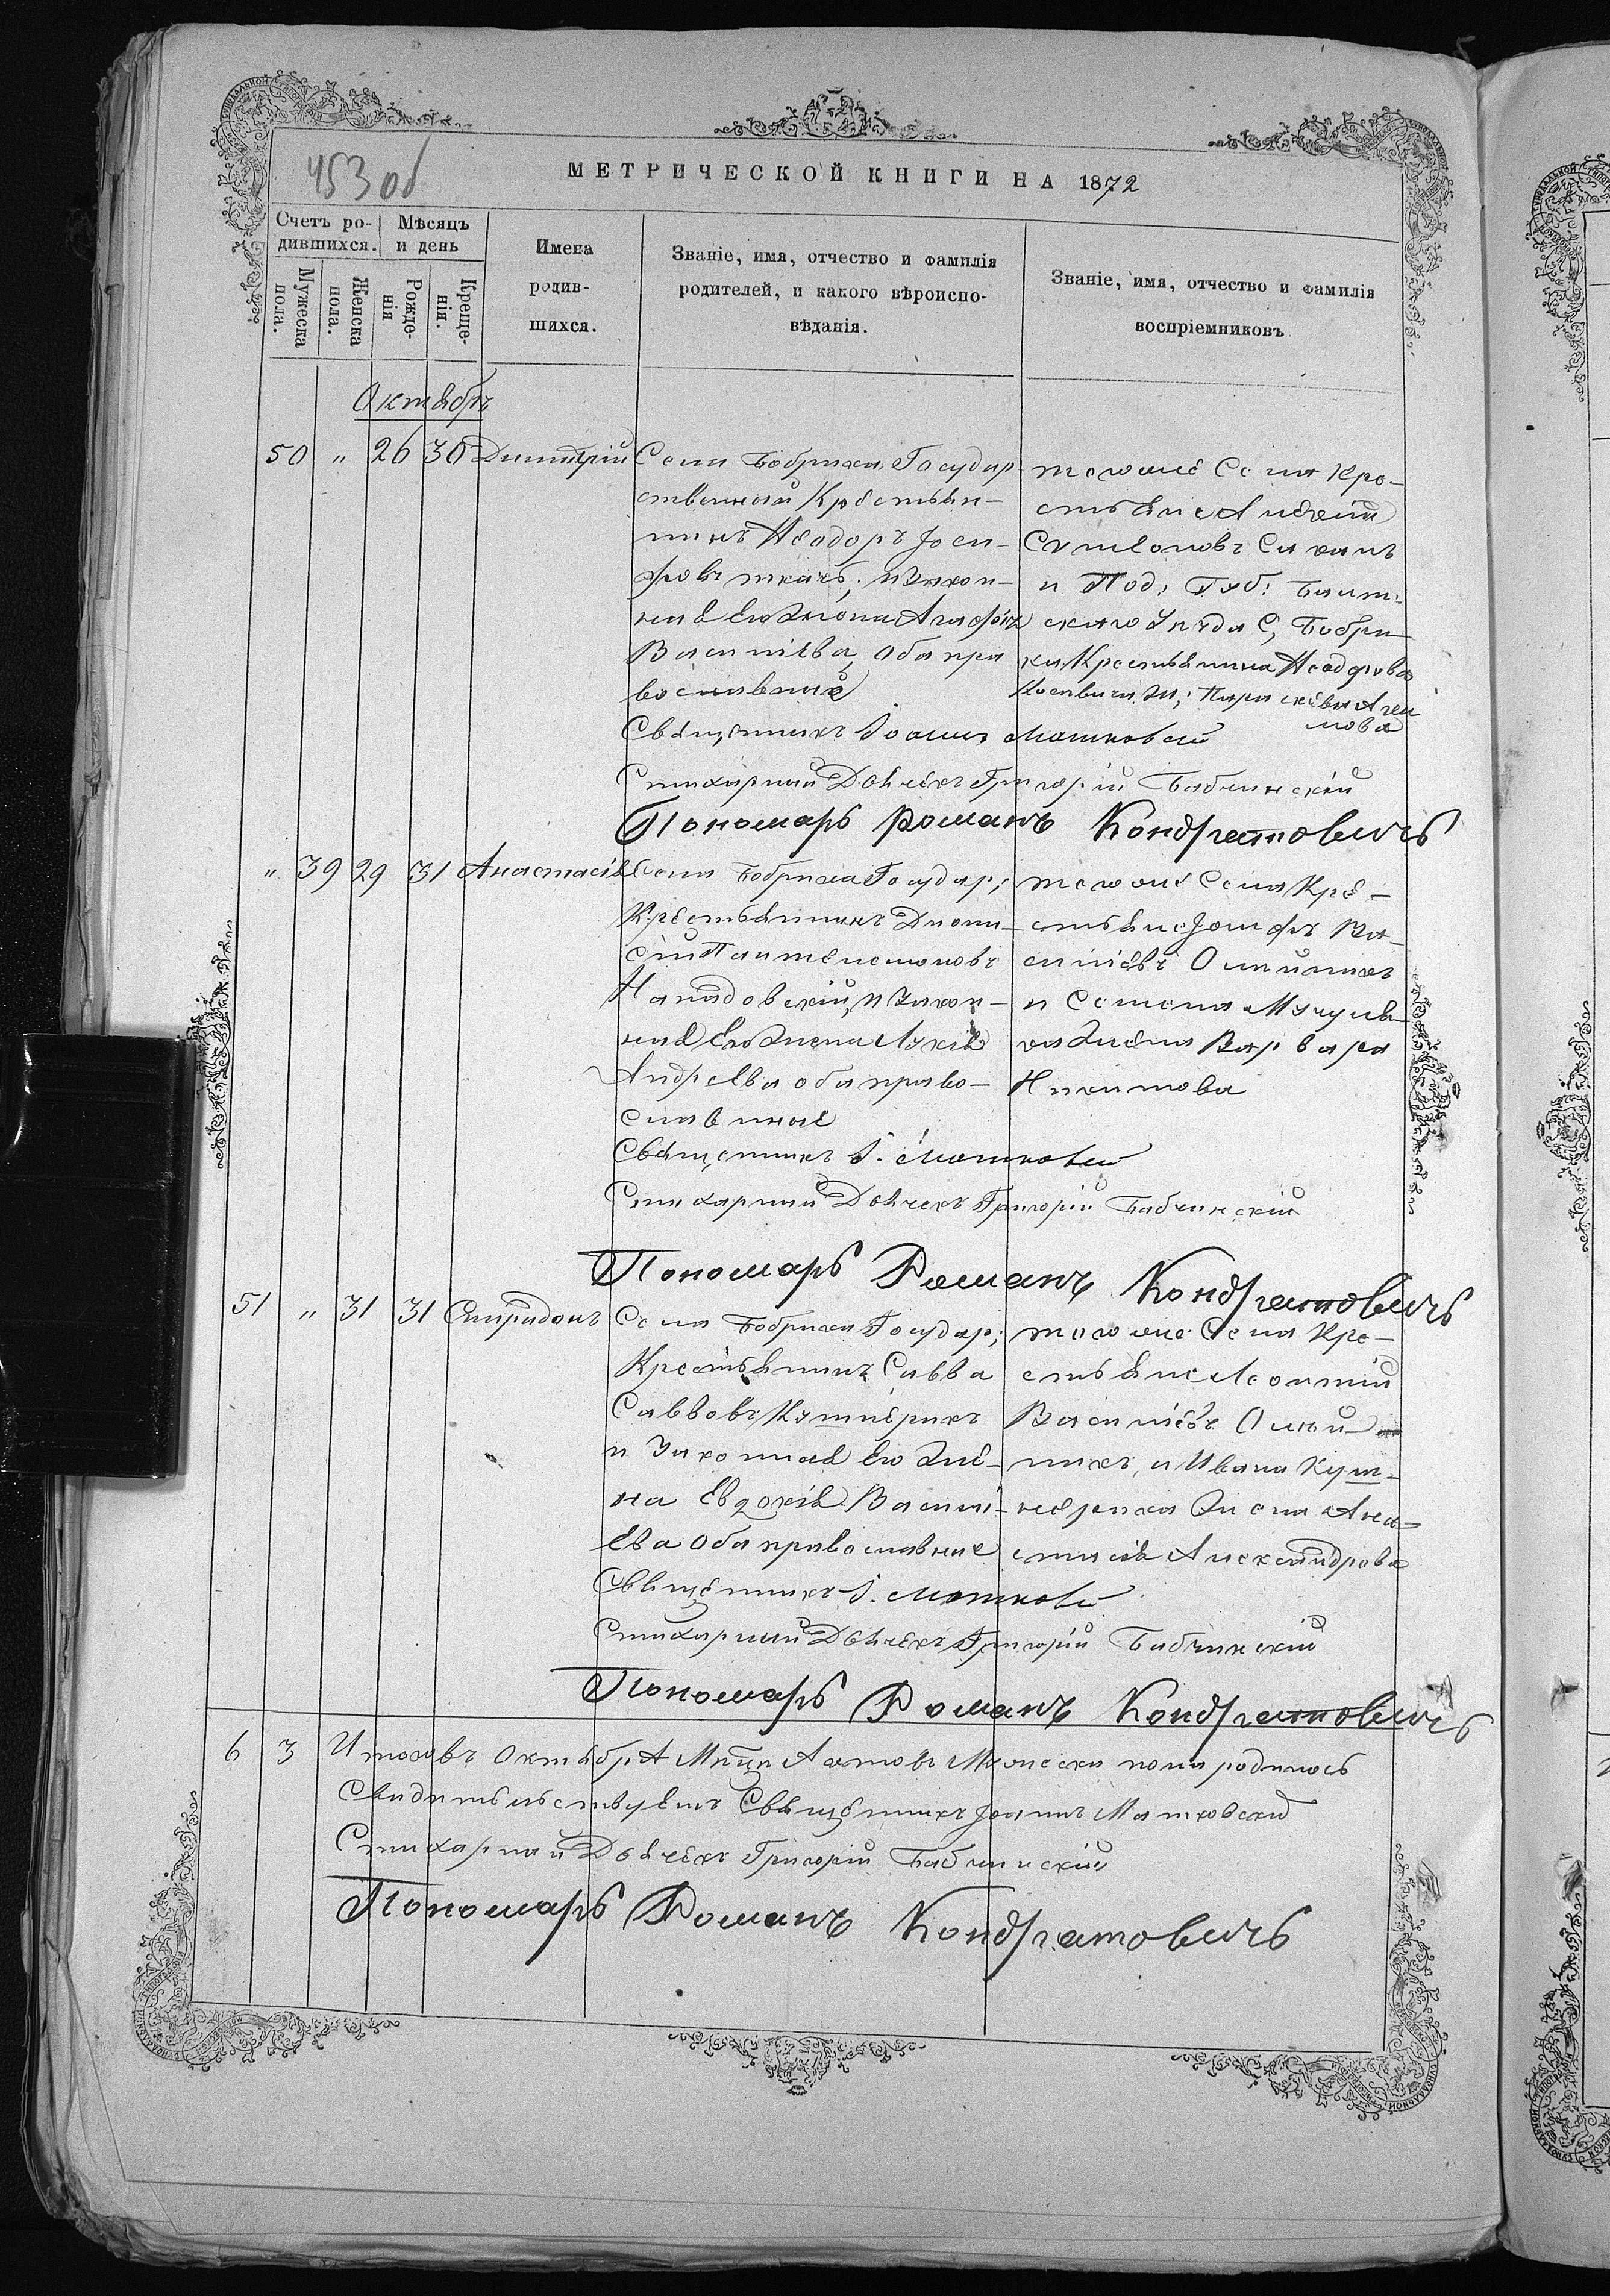 453 об
МЕТРИЧЕСКОЙ КНИГИ НА 1872
Счетъ ро-
дившихся.
Мѣсяцъ
и день
Мужеска
пола.
Женска
пола.
Рожде-
нія
Креще-
нія.
Имена
родив-
шихся.
Званіе, имя, отчество и фамилія
родителей, и какого вѣроиспо-
вѣданія.
Званіе, имя, отчество и фамилія
воспріемниковъ
Октябрь
50 " 26 30 Димитрій
Села Бобрика Государ-
ственный Крестьян-
инъ Ѳеодоръ Іоси-
фовъ ткачъ, и Закон-
ная Его Жена Агафія
Василіева, оба пра
вославные
тогоже Села Кре-
стьяне Алексій
Симеоновъ
и Под: Губ: Балт:
скаго Уезда С, Бобри-
ка Крестьянина Ѳеодорова
Параскева
Священникъ Іоаннъ Матковскій
Стихарный Дьячекъ Григорій Бабчинскій
Пономарь Романъ Кондратовичъ
" 39 29 31 Анастасія
Села Бобрика Государ;
Крестьянинъ Діони-
сій Пантелемоновъ
и Закон-
ная Его Жена Лукія
Андреева оба право-
славные
тогоже Села Кре-
стьяне Іосифъ Ва-
силіевъ Олийникъ
и Семена
жена Варвара
Никитова
Священникъ І. Матковскій
Стихарный Дьячекъ Григорій Бабчинскій
Пономарь Романъ Кондратовичъ
51 " 31 31 Спиридонъ
Села Бобрика Государ;
Крестьянинъ Савва
Саввовъ Кушнерикъ
и Законная Его Же-
на Евдокія Василі-
ева Оба православные
тогоже Села Кре-
стьяне Леонтій
Василіевъ Олий-
никъ, и Ивана Куш-
нерика Жена Ана-
стасія Александрова
Священникъ І. Матковскій
Стихарный Дьячекъ Григорій Бабчинскій
Пономарь Романъ Кондратовичъ
6 3 Итого въ Октябрѣ Мцѣ Актовъ Мужеска пола родилось
Свидѣтельствуемъ Священникъ Іоаннъ Матковскій
Стихарный Дьячекъ Григорій Бабчинскій
Пономарь Романъ Кондратовичъ